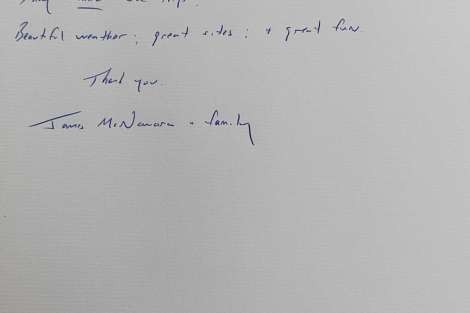 Beautiful weather; great sites; + great fun.
Thank you.
James McNamara + family